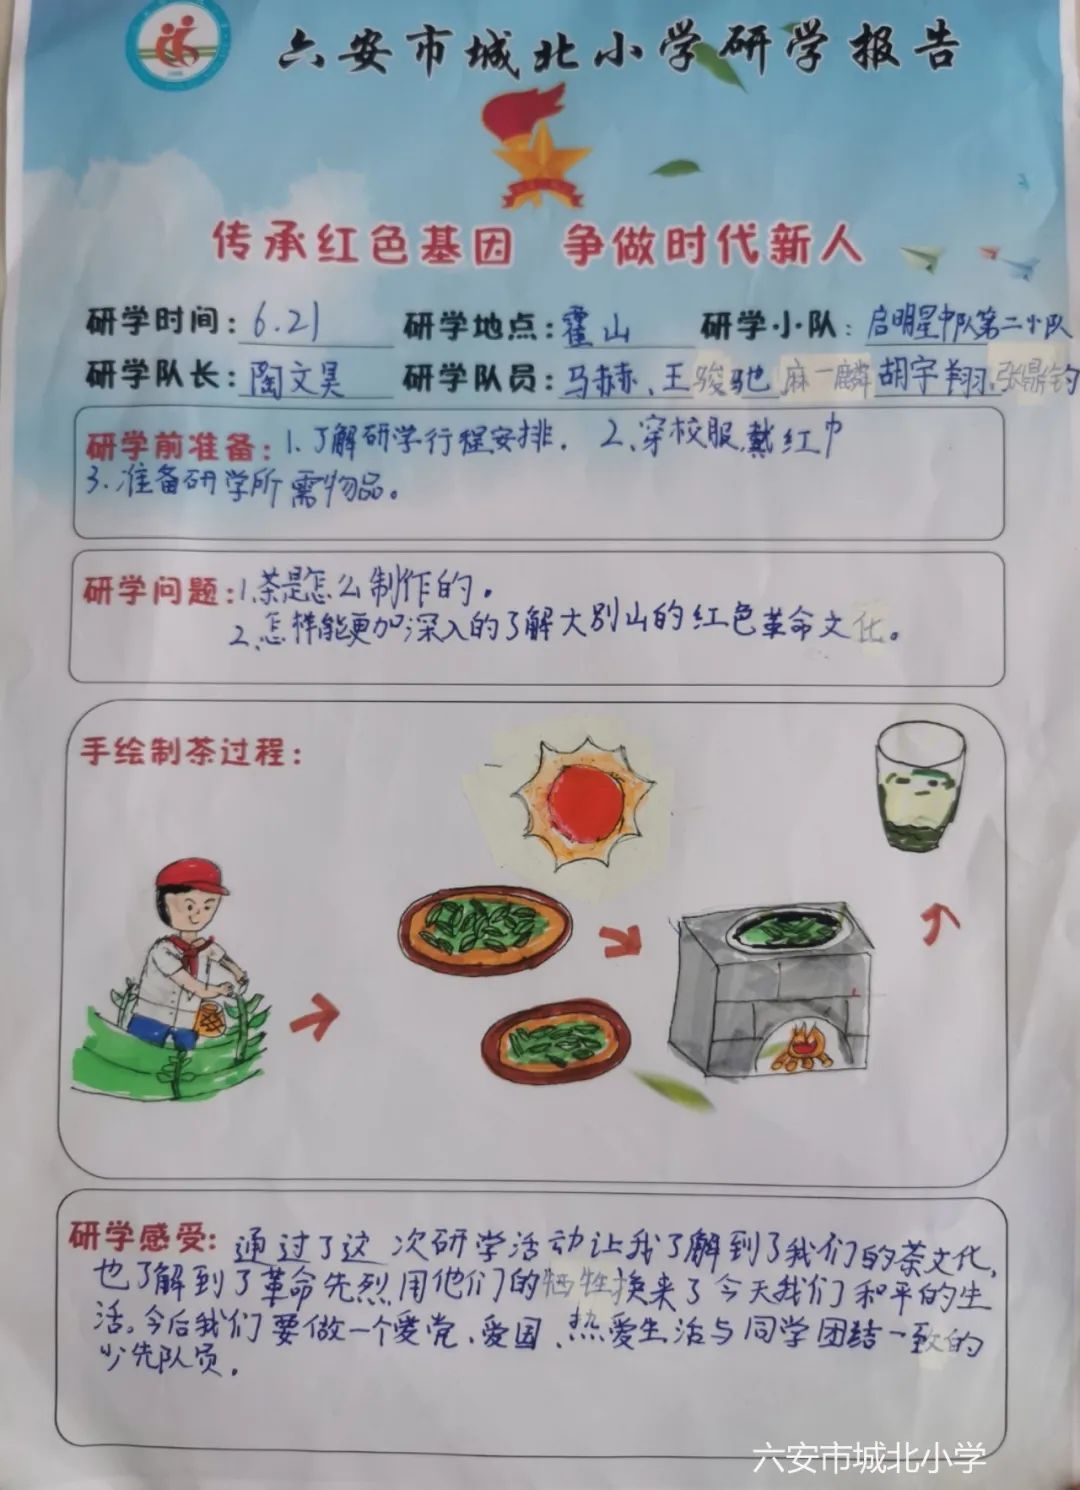 六安市城北小学研学报告
传承红色基因 争做时代新人
研学时间：6.21 研学地点：霍山 研学小队：启明星中队第二小队
研学队长：陶文昊 研学队员：马赫赫、王骏驰 麻一麟 胡宇翔、张鼎钧
研学前准备：1.了解研学行程安排. 2、穿校服,戴红巾
3.准备研学所需物品。
研学问题：1、茶是怎么制作的.
2、怎样能更加深入的了解大别山的红色革命文化。
手绘制茶过程：
研学感受：通过了这次研学活动让我了解到了我们的茶文化,
也了解到了革命先烈用他们的牺牲换来了今天我们和平的生
活。今后我们要做一个爱党、爱国、热爱生活与同学团结一致的
少先队员.
六安市城北小学